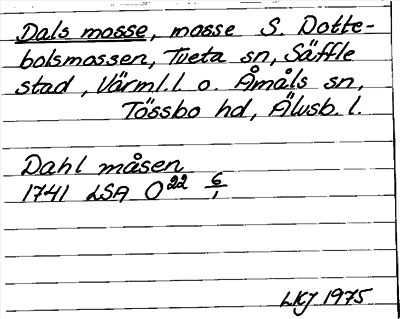 Dals mosse, mosse S. Dotte-
bolsmossen, Tveta sn, Säffle
stad, Värml.l. o. Åmåls sn,
Tössbo hd, Älvsb. l.
Dahl måsen
1741 LSA O22 6/1
LKJ 1975